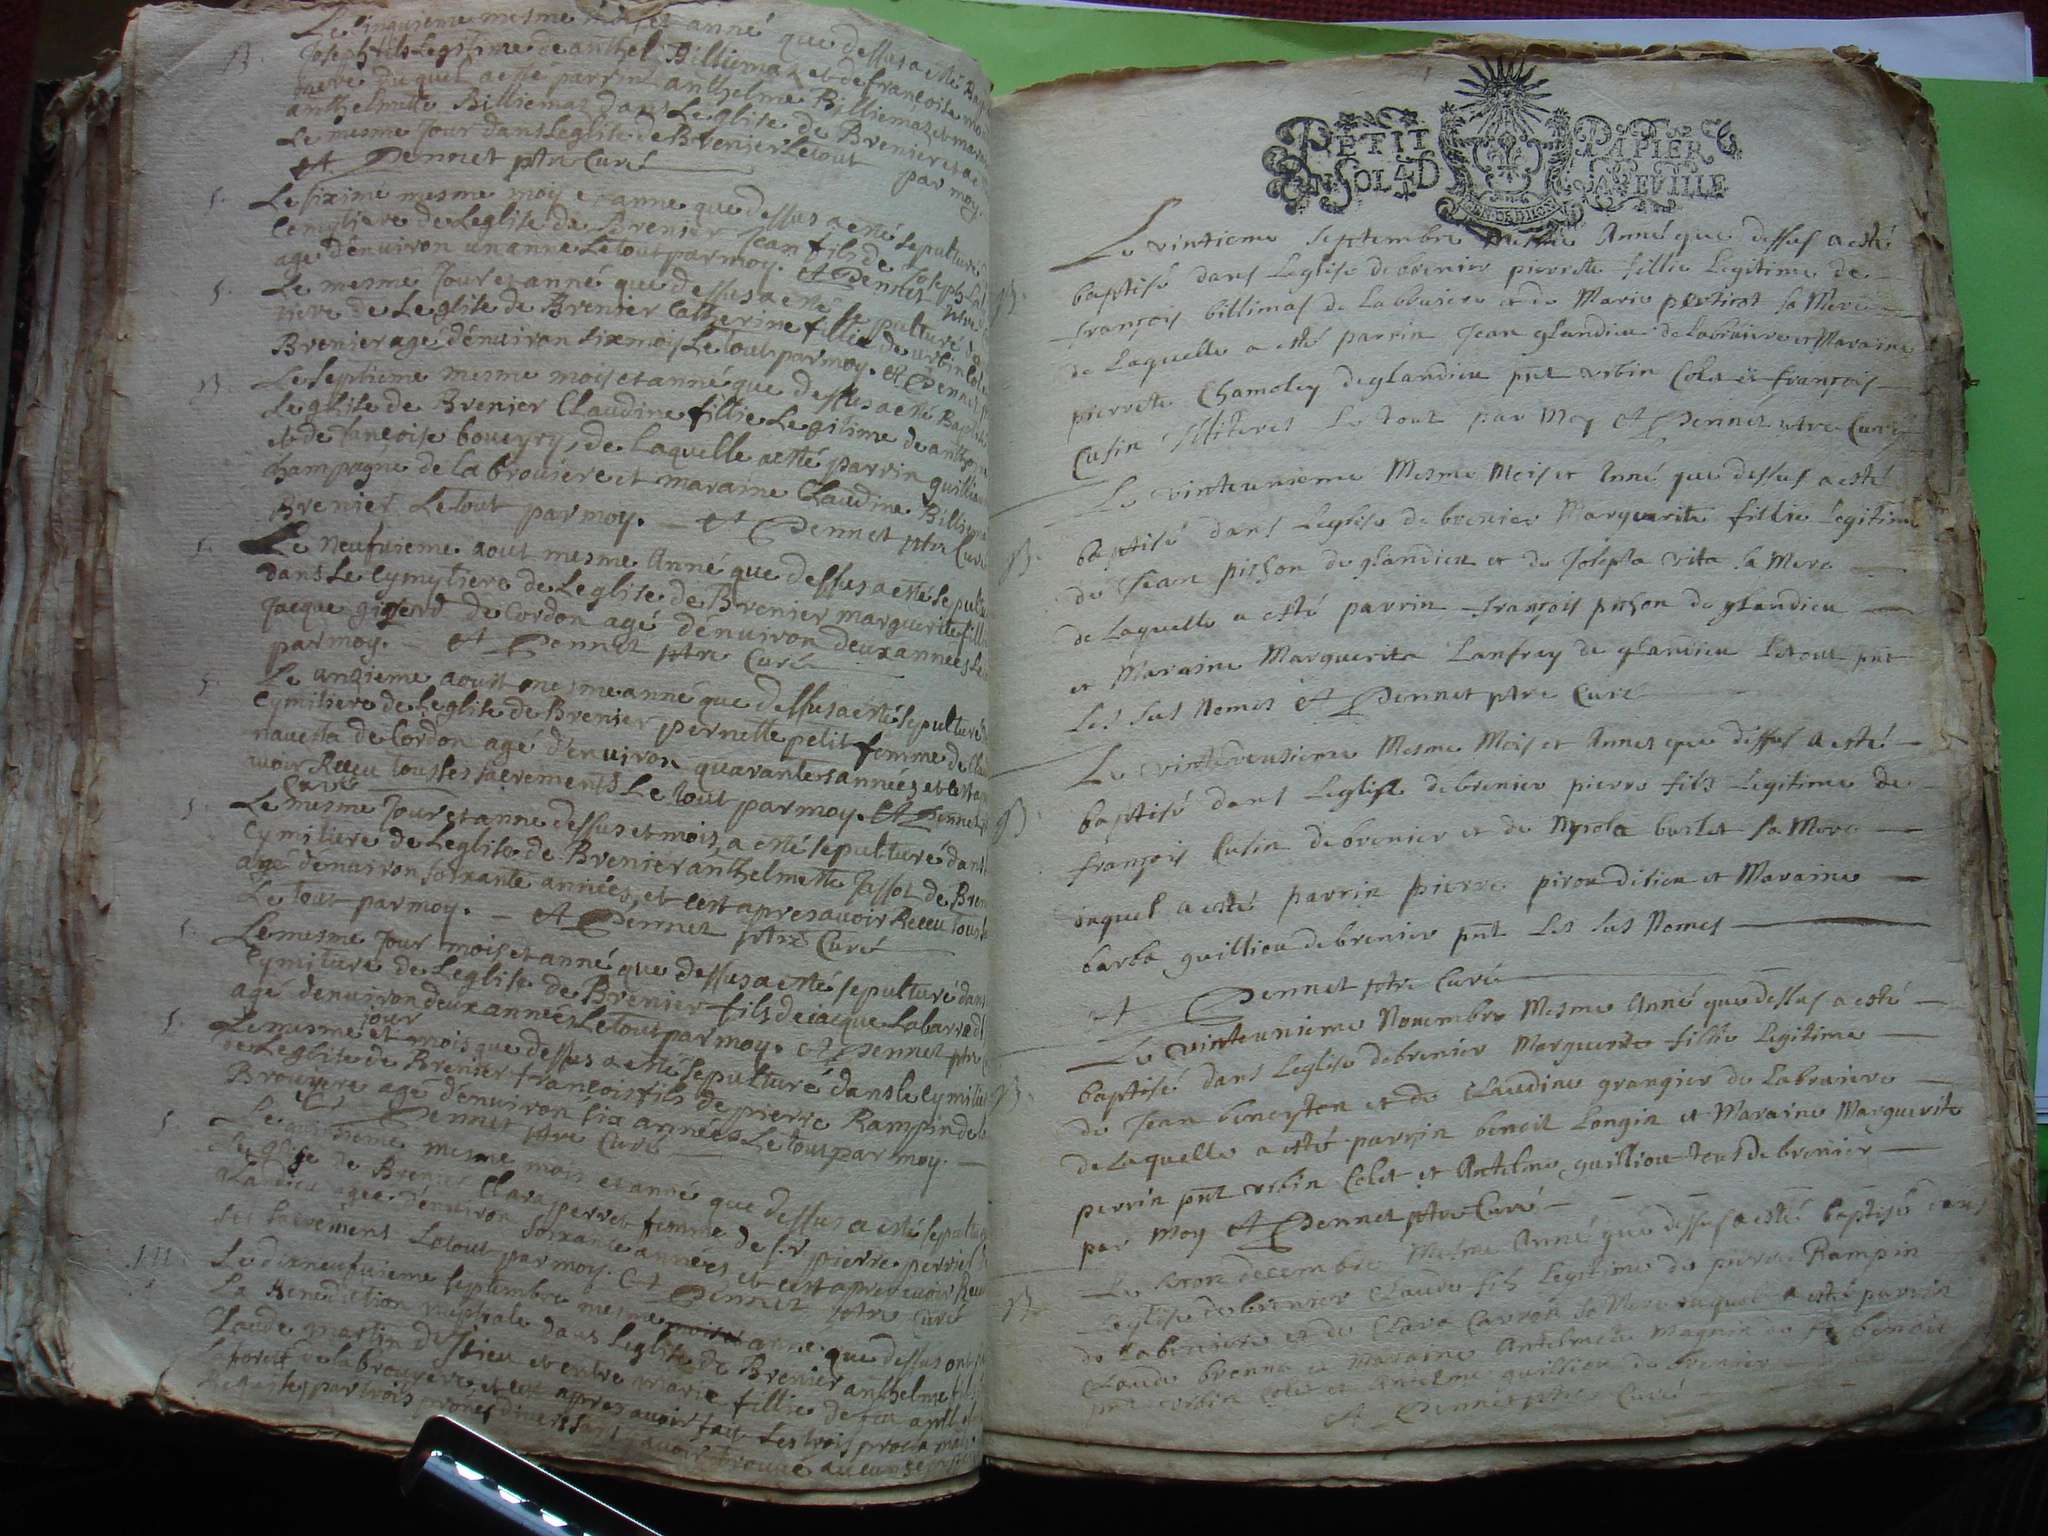 Le cinquieme mesme mois et anné que dessus a esté Bap
B. Joseph fils Legitime de anthel Billiemaz et de françoise
mere duquel a esté parrin anthelme Billiemaz et mar
anthelmette Billiemaz dans Leglise de Brenier et
Le mesme Jour dans Leglise de Brenier Le tout par moy.
A Pennet ptre Curé
S. Le sixime mesme moy et anne que dessus a esté sepulturé
Cemytiere de Leglise de Brenier Jean fils de Joseph
age d'enuiron un anne Le tout par moy. A Pennet ptre
S. Le mesme Jour et anné que dessus a esté sepulturé
tiere de Leglise de Brenier Catherine fillie de urbin Colet
Brenier agé d'enuiron six mois Le tout par moy. A Pennet
B. Le septieme mesme mois et anné que dessus a esté Baptisé
Leglise de Brenier Claudine fillie Legitime de anthe
et de françoise boueyry, de Laquelle a esté parrin guillia
Champagne de la brouiere et maraine Claudine Billiema
Brenier Le tout par moy. — A Pennet ptre Curé
S. Le neufuieme aout mesme Anné que dessus a esté sepultu
dans Le Cymytiere de Leglise de Brenier marguerite filli
Jacque gigend de Cordon agé d'enuiron deux années Le
par moy. — A Pennet ptre Curé
S. Le onzieme aoust mesme anné que dessus a esté sepulturé
Cymitiere de Leglise de Brenier pernette petit femme de Cla
nauetta de Cordon agé d'enuiron quarantes années et cest a
uoir Receu tous ses sacrements Le tout par moy. A Pennet
Curé
S. Le mesme Jour et anne dessus et mois, a esté sepulturé dans
Cymitiere de Leglise de Brenier anthelmette Jassot de Bren
age d'enuiron soixante années, et cest apres auoir Receu tous
Le tout par moy. — A Pennet ptre Curé
S. Le mesme Jour mois et anné que dessus a esté sepulturé dans
Cymitiere de Leglise de Brenier fils de iacque Labarre d
agé d'enuiron deux années Le tout par moy. A Pennet ptre
S. Le mesme jour et mois que dessus a esté sepulturé dans le Cymitie
de Leglise de Brenier françois fils de pierre Rampin de la
Brouiere agé d'enuiron six années Le tout par moy. —
A Pennet ptre Curé —
S. Le mesme mois et anné que dessus a esté sepultu
Leglise de Brenier Clara perret femme de s.r pierre perrin
glandieu agee d'enuiron soixante années, et cest apres auoir Receu
ses sacrements Le tout par moy. A Pennet ptre Curé
M. Le dixneufuieme septembre mesme anné que dessus ont
La Benediction nuptiale dans Leglise de Brenier anthelme fil
Claude martin de et entre marie fillie de feu anthel
Laforest de labrouyere et cest apres auoir fait Les trois proclamati
Requises par trois prones diuers sans auoir trouué aucun
PETIT PAPIER
UN SOL 4 D LA FEUILLE
Le vintieme septembre mesme Anné que dessus a esté
B. baptisé dans Leglise de brenier pierrete fillie Legitime de
françois billimas de Labruiere et de Marie perticot sa Mere
de Laquelle a esté parrin Jean glandieu de Labruiere et Maraine
pierrete Chamoley de glandieu pnt urbin Colet et françois
Cusin Illiteres Le tout par Moy A Pennet ptre Curé
Le vinteunieme Mesme Mois et Anné que dessus a esté
B. baptisé dans Leglise de brenier Marguerite fillie Legitime
de Jean pichon de glandieu et de Josepta vita sa Mere
de Laquelle a esté parrin françois pichon de glandieu
et Maraine Marguerite Lanfrey de glandieu Le tout pnt
Les sus Nomes A Pennet ptre Curé
Le vintedeusieme Mesme Mois et Annee que dessus a esté
B. baptisé dans Leglise de brenier pierre fils Legitime de
françois Cusin de brenier et de burlet sa Mere
duquel a esté parrin pierre piron et Maraine
barba guilliou de brenier pnt Les sus Nomes
A Pennet ptre Curé
Le vinteunieme Nouembre Mesme Anné que dessus a esté
B. baptisé dans Leglise de brenier Marguerite fillie Legitime
de Jean beneyton et de Claudine grangier de Labruiere
de Laquelle a esté parrin benoit Longin et Maraine Marguerite
perrin pnt urbin Colet et Antelme guilliou tous de brenier
par Moy A Pennet ptre Curé
Le decembre Mesme Anné que dessus a esté baptisé dans
B. Leglise de brenier Claude fils Legitime de pierre Rampin
de Labruiere et de Clara Carron sa Mere duquel a esté parrin
Claude bronna et Maraine Antelmete Magnin de St benoit
pnt urbin Colet et Antelme guilliou de brenier
A Pennet ptre Curé